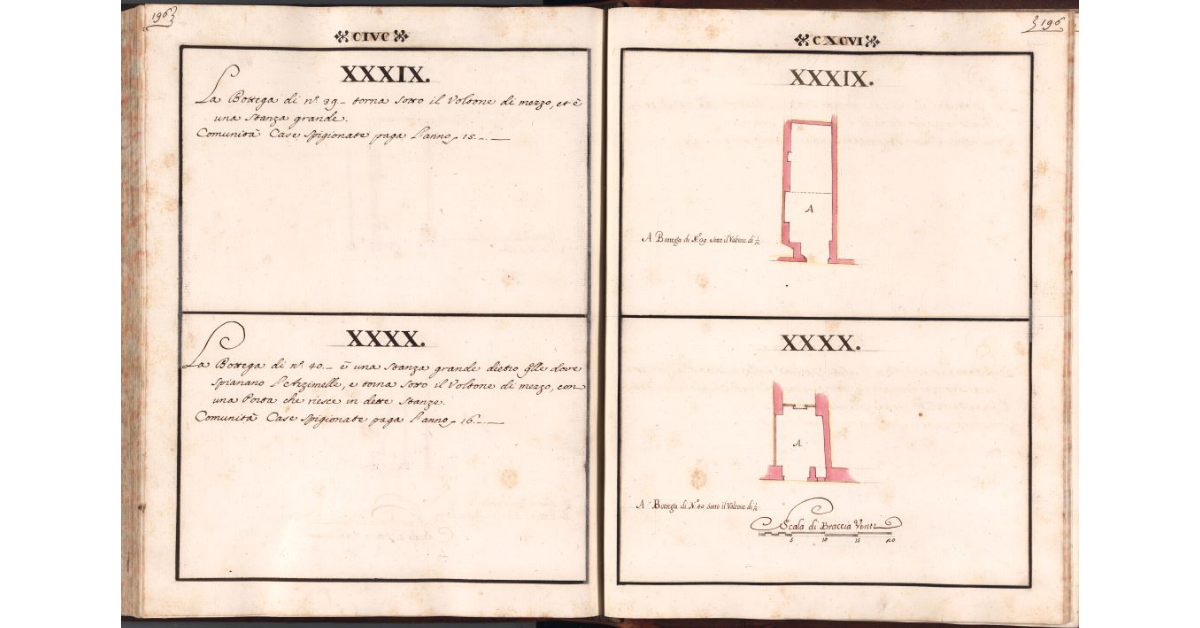 196
CIVC
XXXIX.
La Bottega di n.° 39 - torna sotto il Voltone di mezzo, et è
una stanza grande.
Comunità Case spigionate paga l'anno 15.-.-
XXXX.
La Bottega di n.° 40 - è una stanza grande dietro q̃lle dove
spianano l'Azzimelle, e torna sotto il Voltone di mezzo, con
una Porta che riesce in dette stanze.
Comunità Case spigionate paga l'anno 16.-.-
196
CXCVI
XXXIX.
A
A Bottega di N.° 39 sotto il Voltone di
XXXX.
A
A Bottega di N.° 40 sotto il Voltone di
Scala di Braccia Venti
5 10 15 20